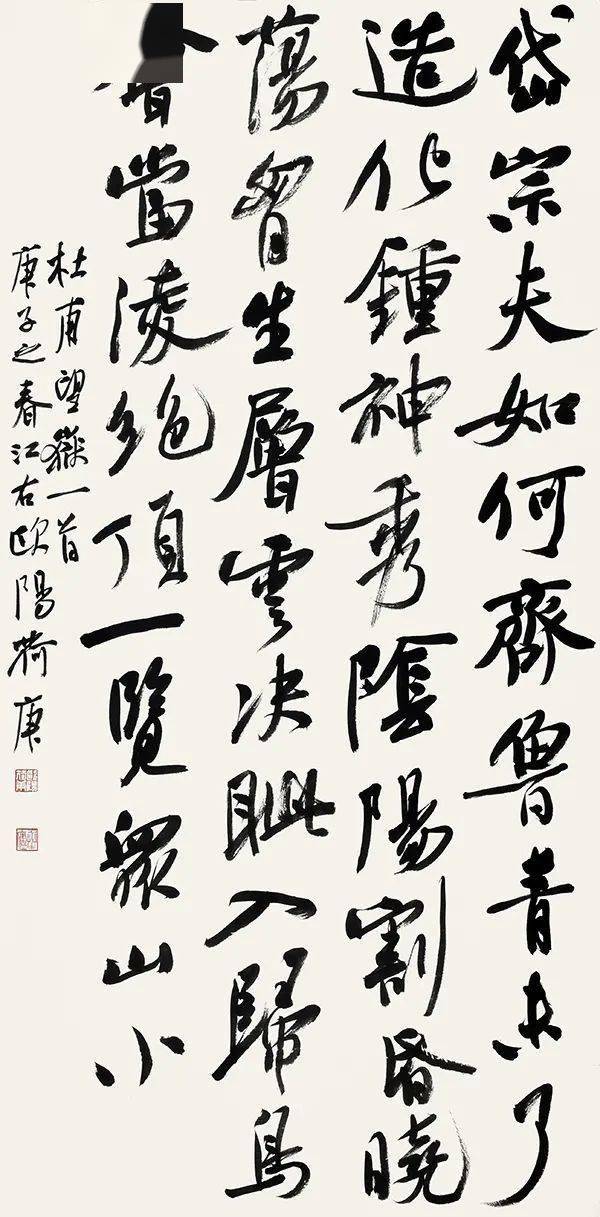 岱宗夫如何齊魯青未了
造化鍾神秀陰陽割昏曉
蕩胷生層雲决眦入歸鳥
當淩絕頂一覽眾山小
杜甫望嶽一首
庚子之春江右欧陽荷庚